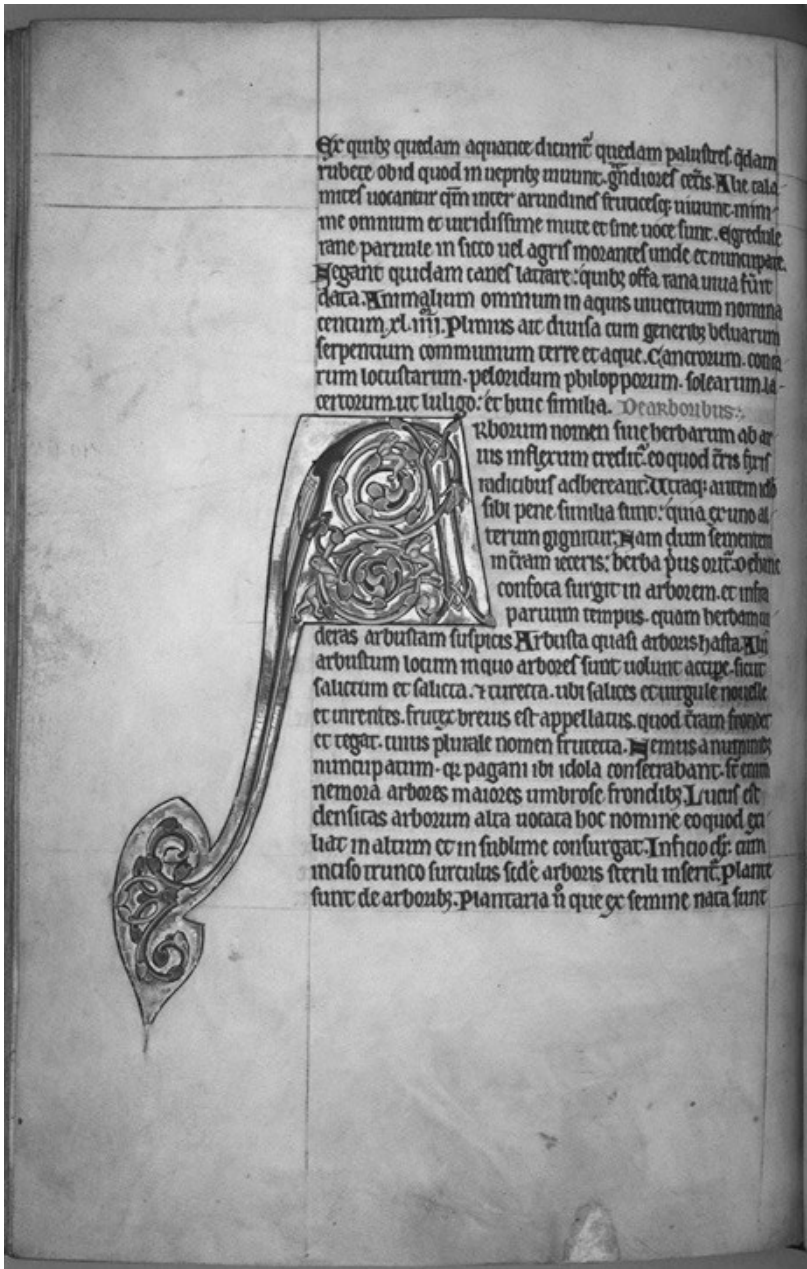 Ex quibꝫ quedam aquatice dicunt᷑ quedam palustres. q̄dam
rubete ob id quod in uepribꝫ uiuunt. g̃ndiores cet̃is. Alie cala
mites uocantur qm̄ inter arundines fruticesqꝫ uiuunt. mini
me omnium et uiridissime mute et sine uoce sunt. Egredule
rane paruule in sicco uel agris morantes unde et nuncupate.
Negant quidam canes latrare: quibꝫ offa rana uiua fu͛it
data. Animalium omnium in aquis uiuentium nomina
centum .xl.iiii. Plinius ait diuisa cum generibꝫ beluarum
serpentium communium terre et aque. Cancrorum. conca
rum locustarum. peloridum philopporum. solearum. la
certorum. ut luligo: et huic similia. De arboribus:.
Arborum nomen siue herbarum ab ar
uis inflexum credit᷑. eo quod t̃ris fixis
radicibus adhereant. Utraqꝫ autem ido
sibi pene similia sunt: quia ex uno al
terum gignitur. Nam dum sementem
in t̃ram ieceris: herba p̓us orit᷑. dehinc
confota surgit in arborem. et infra
paruum tempus. quam herbam ui
deras arbustam suspicis Arbusta quasi arboris hasta. Alii
arbustum locum in quo arbores sunt uolunt accipe. sicut
salictum et salicta. ⁊ turecta. ubi salices et uirgule nouelle
et uirentes. frutex breuis est appellatus. quod t̃ram frondet
et tegat. cuius plurale nomen frutecta. Nemus a numinibꝫ
nuncupatum. qꝛ pagani ibi idola consecrabant. st̄ enim
nemora arbores maiores umbrose frondibꝫ. Lucus est
densitas arborum alta uocata hoc nomine eo quod exi
liat in altum et in sublime consurgat. Inficio dr̄. cum
inciso trunco surculus fec̄de arboris sterili inserit᷑. Plante
sunt de arboribꝫ. Plantaria ů que ex semine nata sunt